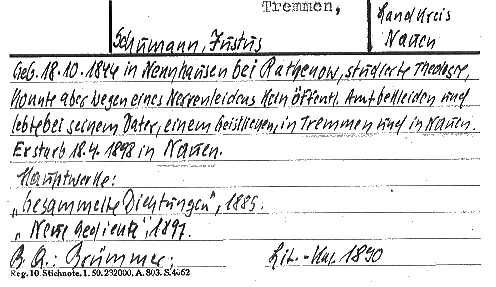 Tremmen,
Landkreis
Schumann, Justus
Nauen
Geb. 18.10.1844 in Nennhausen bei Rathenow, studierte Theologie,
konnte aber wegen eines Nervenleidens kein öffentl. Amt bekleiden und
lebte bei seinem Vater, einem Geistlichen, in Tremmen und in Nauen.
Er starb 18.4.1898 in Nauen.
Hauptwerke:
„Gesammelte Dichtungen", 1885.
„Neue Gedichte", 1897.
B.A.: Brümmer; Lit.-Kal. 1890
Reg. 10 Stichnote. 1. 50. 232000. A. 803. S. 4062